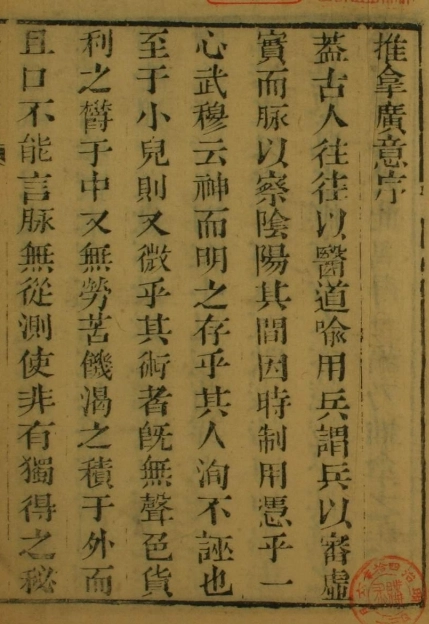 推拿廣意序
蓋古人往往以醫道喻用兵謂兵以審虛
實而脉以察陰陽其間因時制用憑乎一
心武穆云神而明之存乎其人洵不誣也
至于小兒則又微乎其術者旣無聲色貨
利之欝于中又無勞苦饑渴之積于外而
且口不能言脉無從測使非有獨得之秘